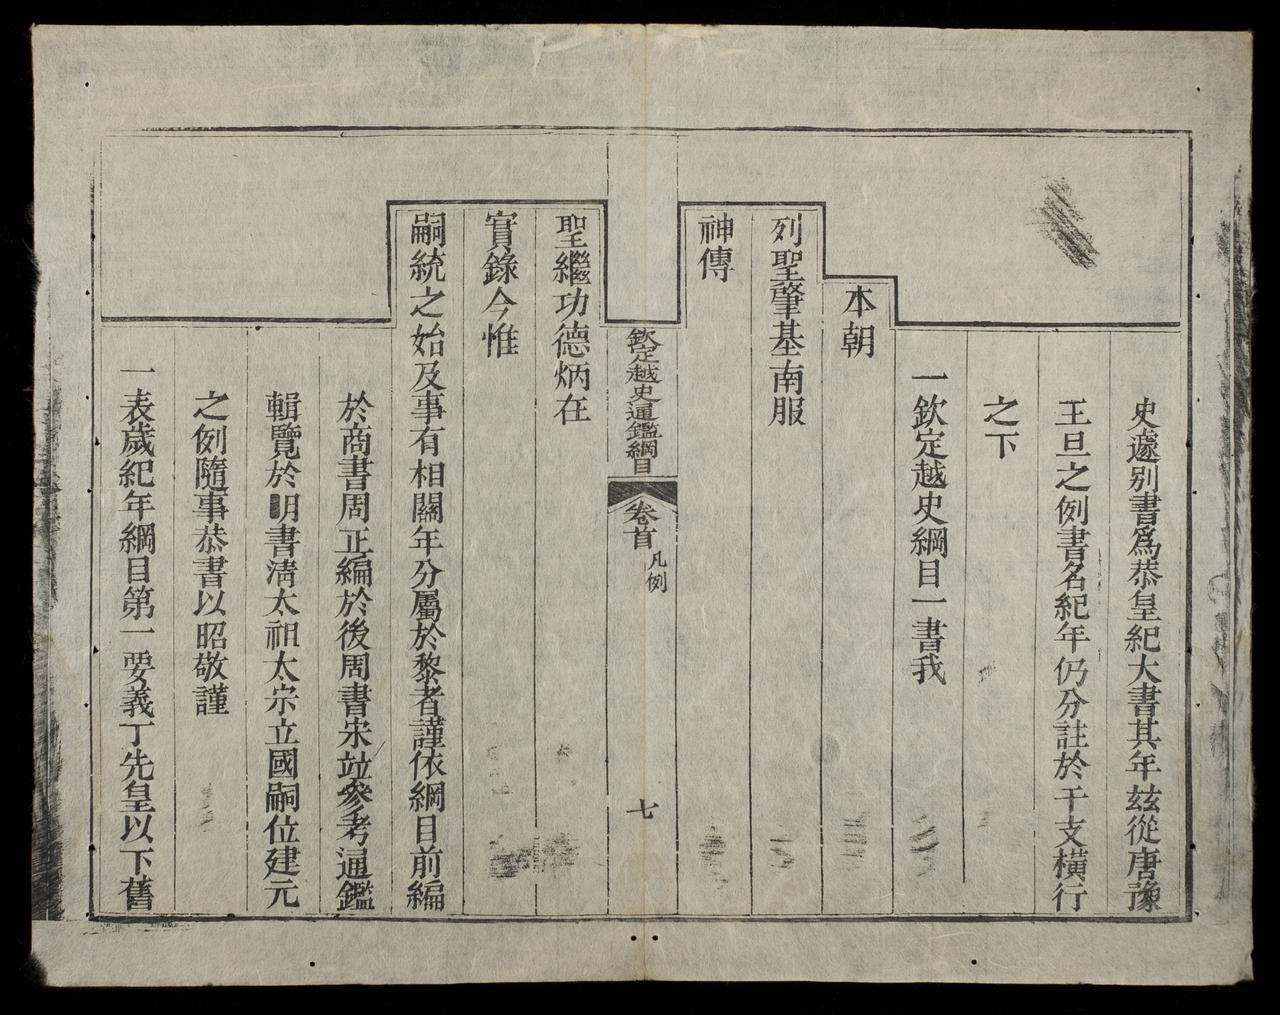 史遽別書爲恭皇紀大書其年玆從唐豫
王旦之例書名紀年仍分註於干支橫行
之下
一欽定越史綱目一書我
本朝
列聖肇基南服
神傳
欽定越史通鑑綱目 卷首 凡例 七
聖繼功德炳在
實錄今惟
嗣統之始及事有相關年分屬於黎者謹依綱目前編
於商書周正編於後周書宋竝參考通鑑
輯覽於明書淸太祖太宗立國嗣位建元
之例隨事恭書以昭敬謹
一表歲紀年綱目第一要義丁先皇以下舊